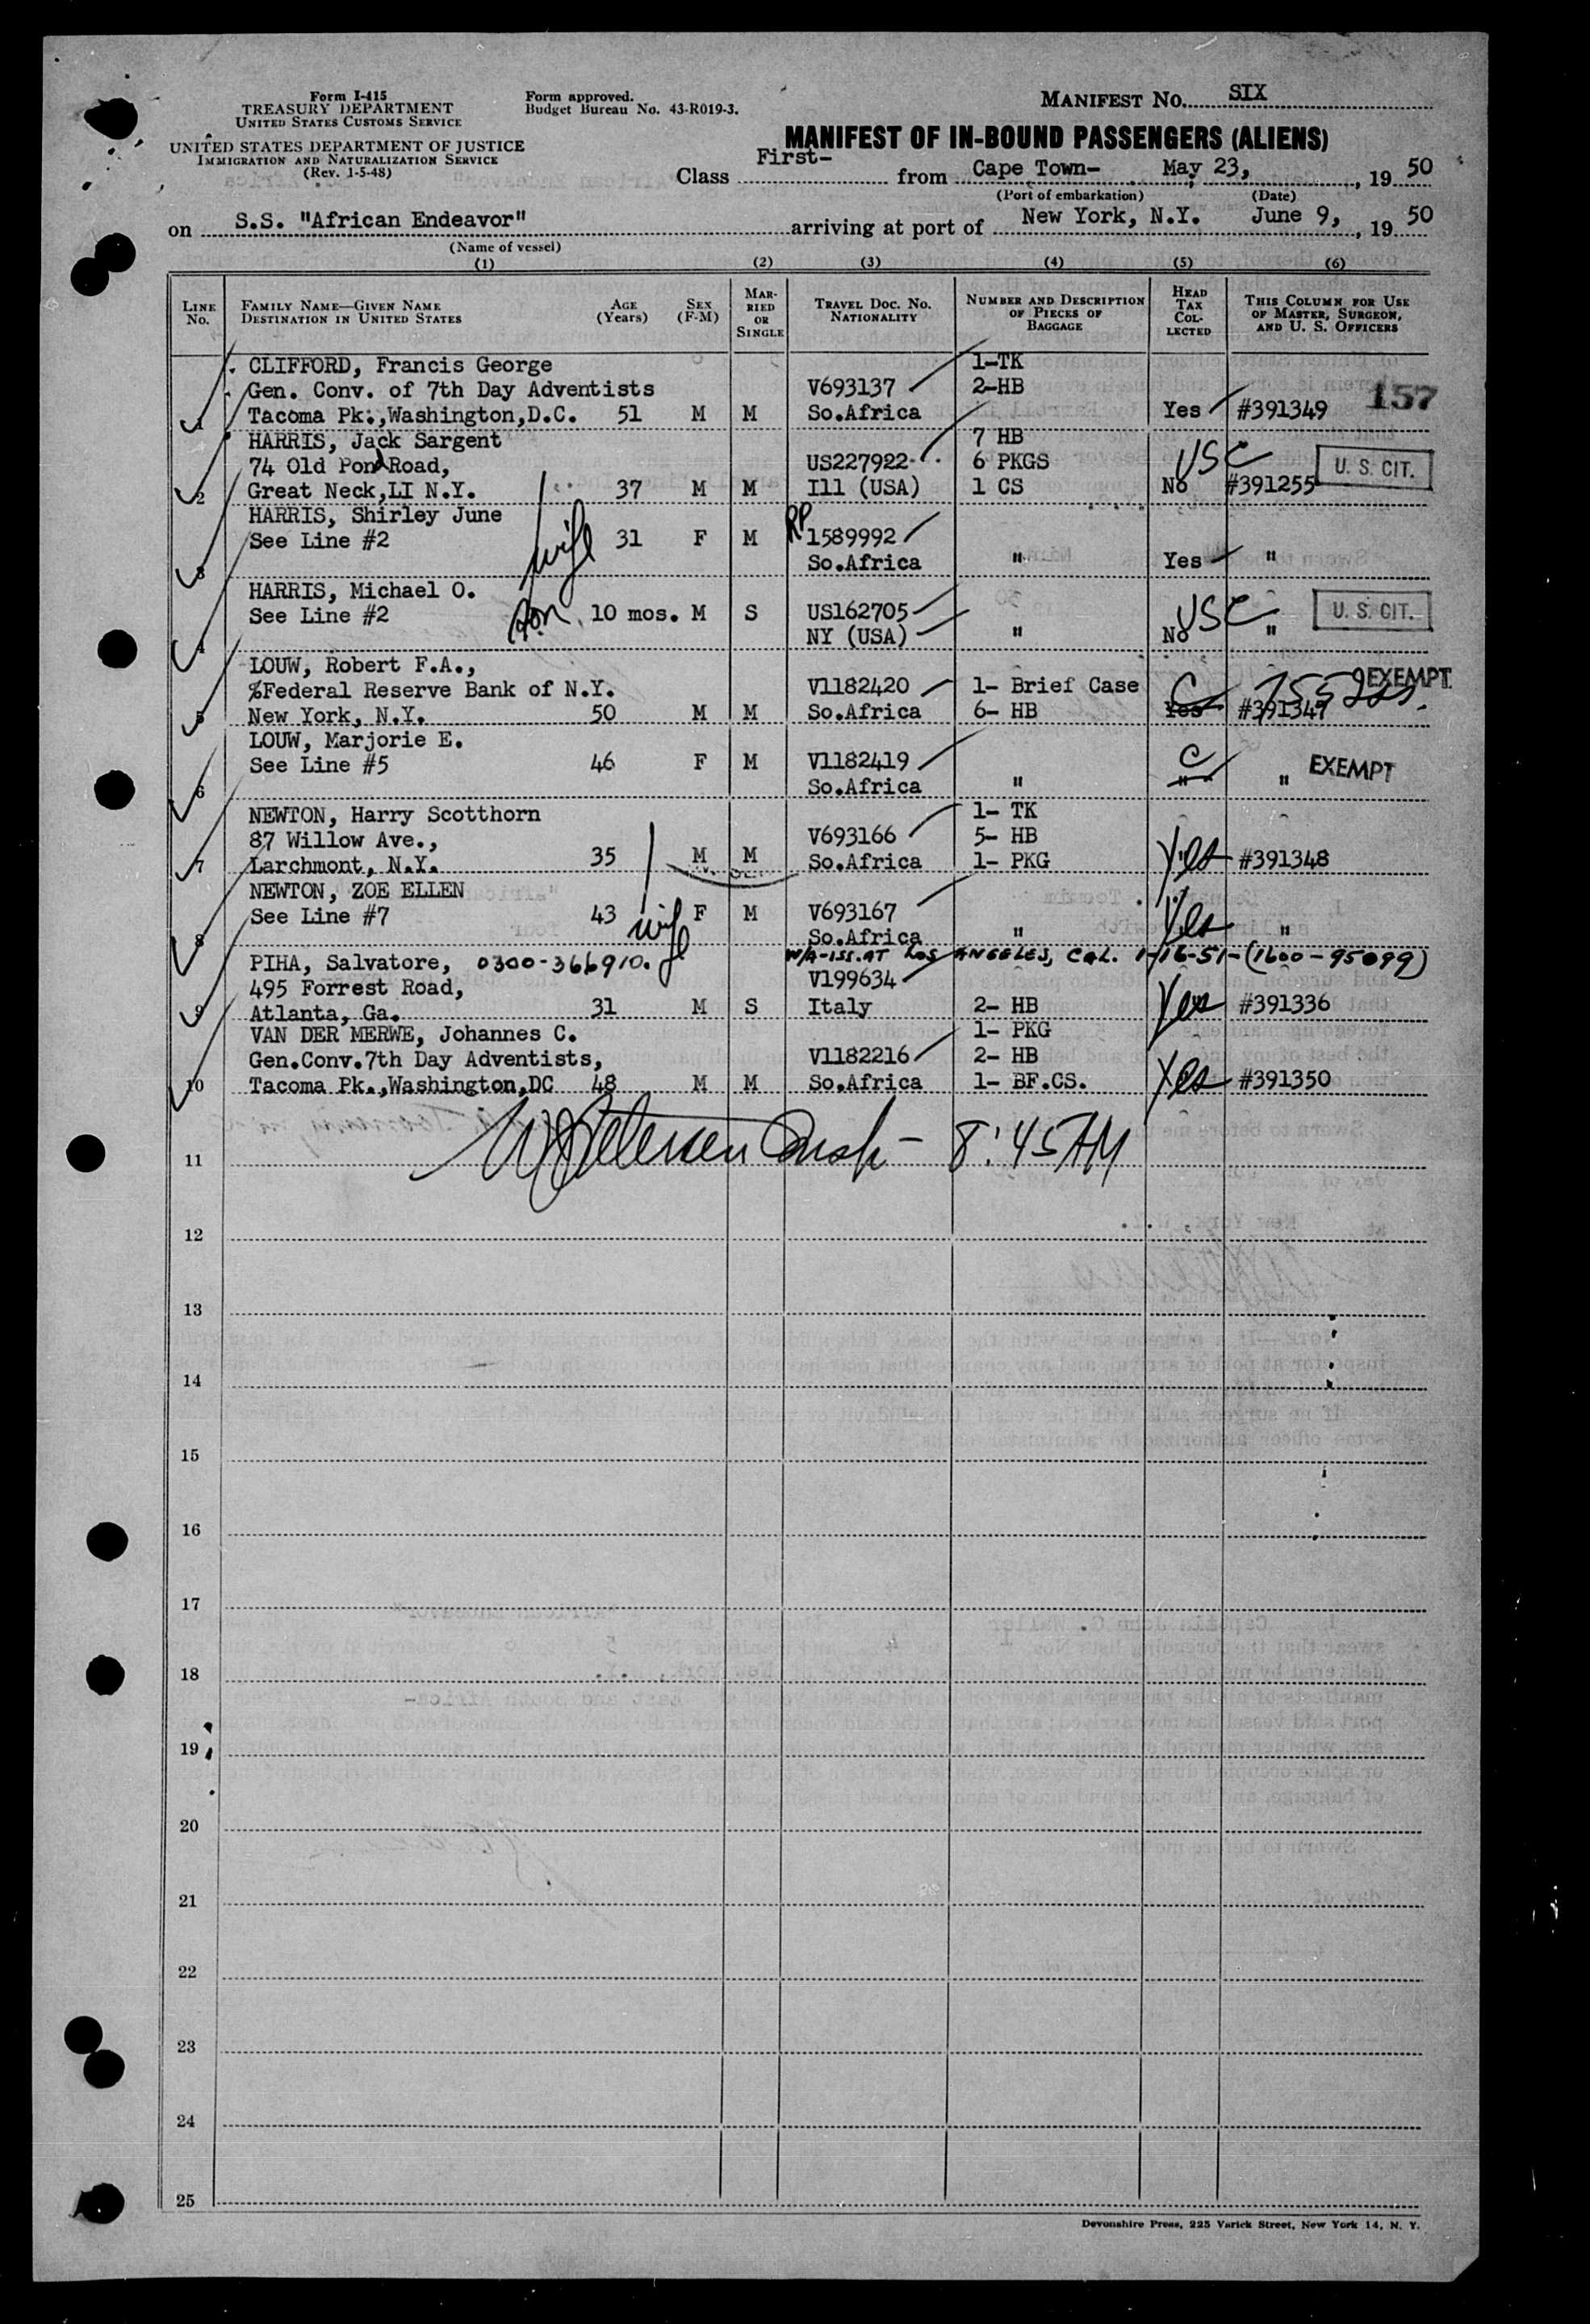 Form I-415
TREASURY DEPARTMENT
UNITED STATES CUSTOMS SERVICE
UNITED STATES DEPARTMENT OF JUSTICE
IMMIGRATION AND NATURALIZATION SERVICE
(Rev. 1-5-48)
Form approved.
Budget Bureau No. 43-R019-3.
MANIFEST NO. SIX
MANIFEST OF IN-BOUND PASSENGERS (ALIENS)
Class First- from Cape Town- May 23, , 19 50
(Port of embarkation) (Date)
on S.S. "African Endeavor" arriving at port of New York, N.Y. June 9, , 19 50
(Name of vessel)
(1) (2) (3) (4) (5) (6)
LINE No. FAMILY NAME—GIVEN NAME DESTINATION IN UNITED STATES AGE (Years) SEX (F-M) MARRIED OR SINGLE TRAVEL DOC. NO. NATIONALITY NUMBER AND DESCRIPTION OF PIECES OF BAGGAGE HEAD TAX COLLECTED THIS COLUMN FOR USE OF MASTER, SURGEON, AND U. S. OFFICERS
CLIFFORD, Francis George 1-TK
Gen. Conv. of 7th Day Adventists V693137 2-HB 157
1 Tacoma Pk.,Washington,D.C. 51 M M So.Africa Yes #391349
HARRIS, Jack Sargent 7 HB
74 Old Pond Road, US227922 6 PKGS USC U. S. CIT.
2 Great Neck,LI N.Y. 37 M M Ill (USA) 1 CS No #391255
HARRIS, Shirley June RP
See Line #2 wife 31 F M 1589992
3 So.Africa " Yes "
HARRIS, Michael O.
See Line #2 son 10 mos. M S US162705 USC U. S. CIT.
4 NY (USA) " No "
LOUW, Robert F.A.,
%Federal Reserve Bank of N.Y. V1182420 1- Brief Case C EXEMPT
5 New York, N.Y. 50 M M So.Africa 6- HB Yes #391347
LOUW, Marjorie E.
See Line #5 46 F M V1182419 C EXEMPT
6 So.Africa " " "
NEWTON, Harry Scotthorn 1- TK
87 Willow Ave., V693166 5- HB
7 Larchmont, N.Y. 35 M M So.Africa 1- PKG Yes #391348
NEWTON, ZOE ELLEN
See Line #7 43 wife F M V693167 Yes
8 So.Africa " "
PIHA, Salvatore, 0300-366910. W/A-ISS. AT LOS ANGELES, CAL. 1-16-51-(1600-95099)
495 Forrest Road, V199634
9 Atlanta, Ga. 31 M S Italy 2- HB Yes #391336
VAN DER MERWE, Johannes C. 1- PKG
Gen.Conv.7th Day Adventists, V1182216 2- HB
10 Tacoma Pk.,Washington,DC 48 M M So.Africa 1- BF.CS. Yes #391350
Petersen Insp- 8:45AM
11
12
13
14
15
16
17
18
19
20
21
22
23
24
25
Devonshire Press, 225 Varick Street, New York 14, N. Y.